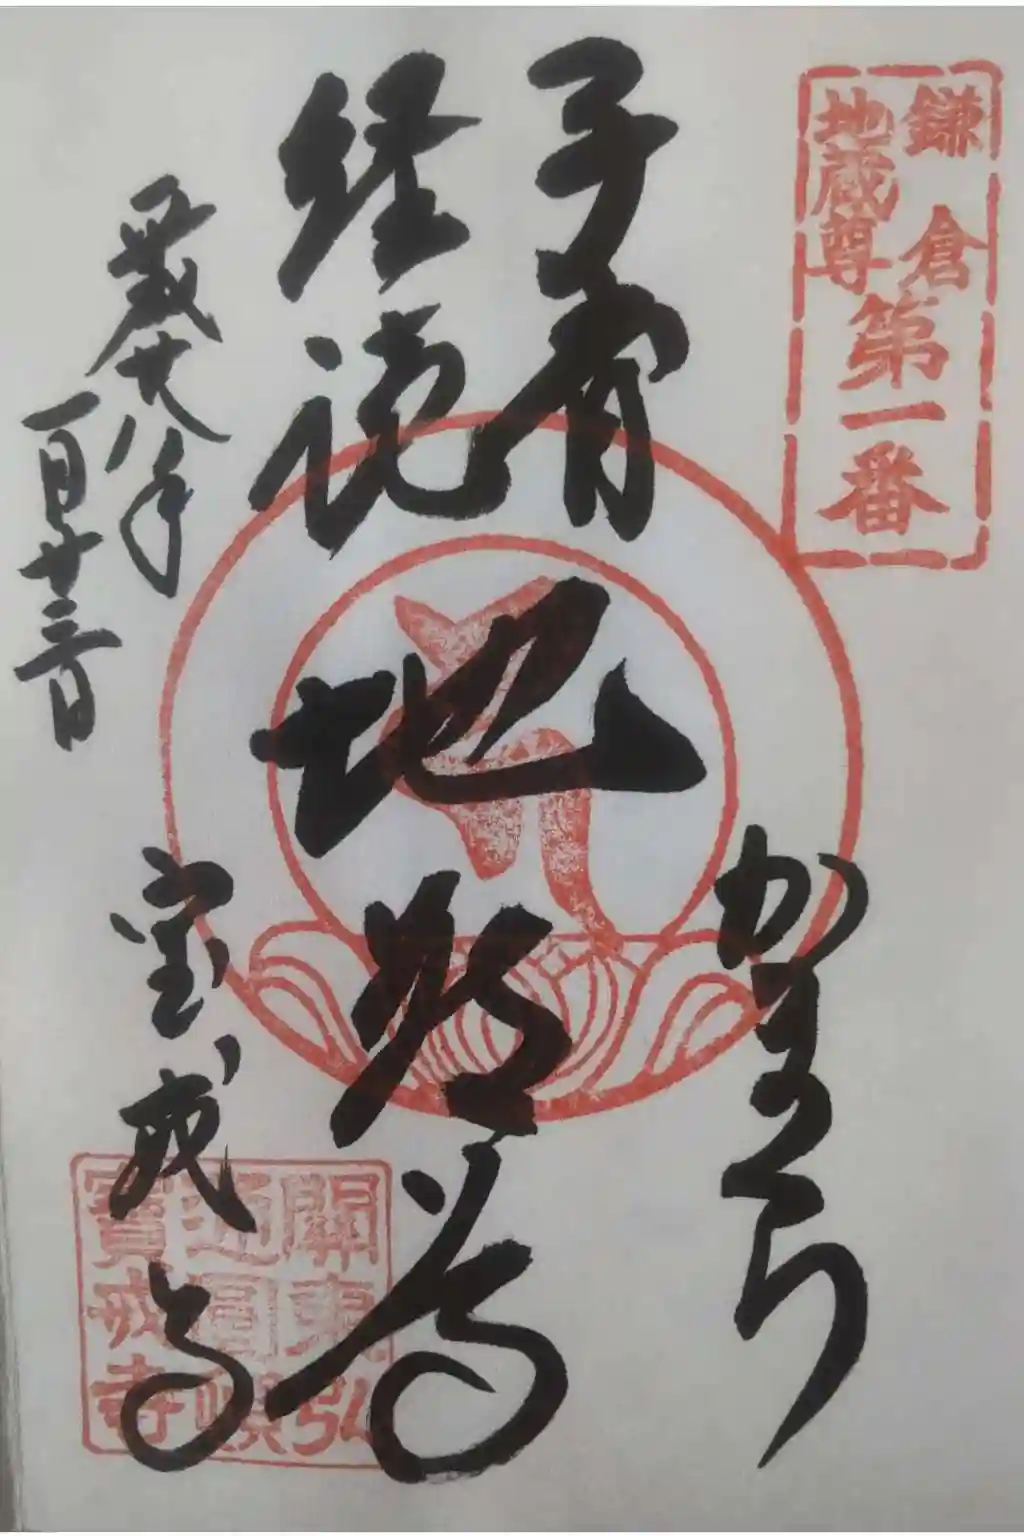 鎌倉
地蔵尊
第一番
かまくら
子育
経読
地蔵尊
平成廿八年
一月廿三日
宝戒寺
關東弘
通圓頓
寶戒寺